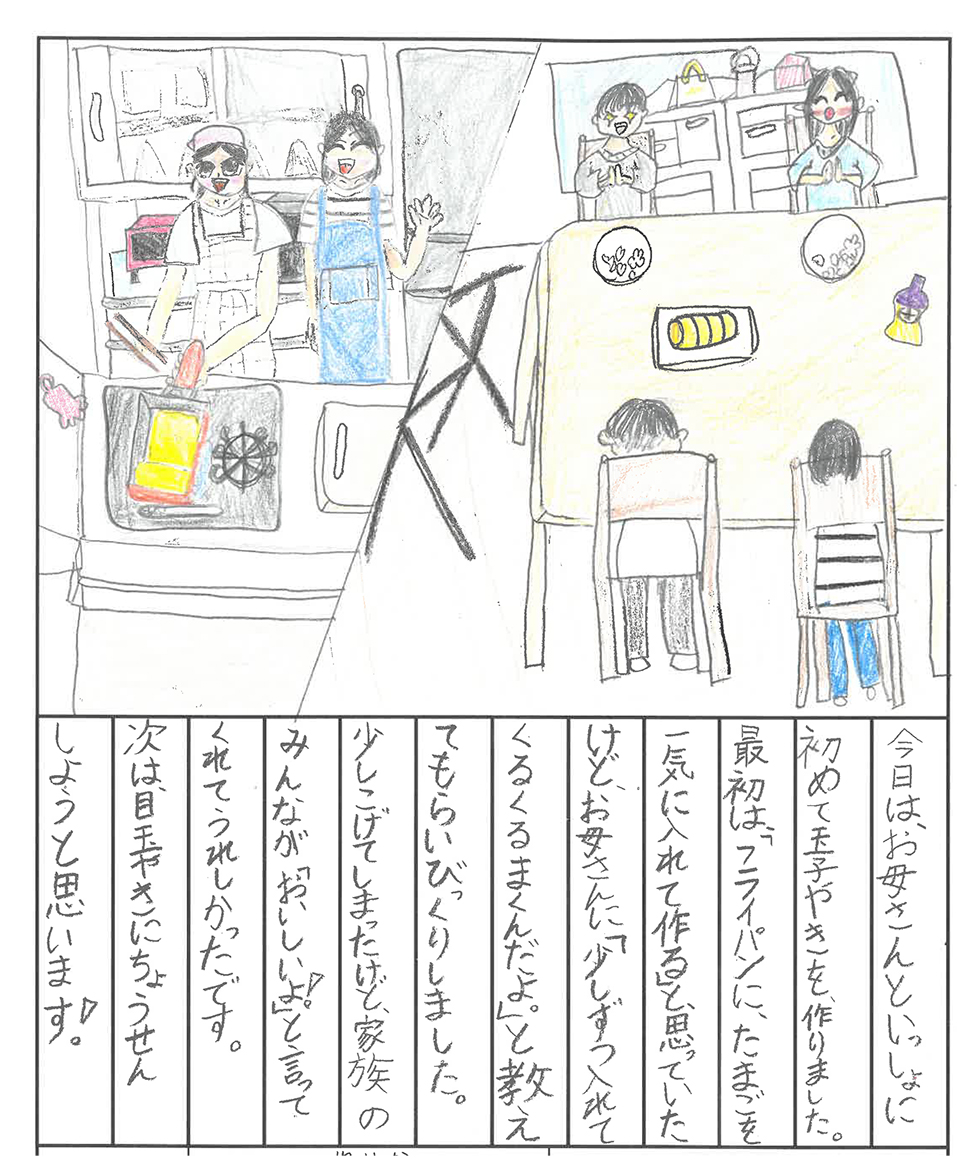 今日は、お母さんといっしょに
初めて玉子やきを、作りました。
最初は、「フライパンに、たまごを
一気に入れて作る」と、思っていた
けど、お母さんに「少しずつ入れて
くるくるまくんだよ。」と教え
てもらいびっくりしました。
少しこげてしまったけど、家族の
みんなが「おいしいよ!」と言って
くれてうれしかったです。
次は、目玉やきにちょうせん
しようと思います!。